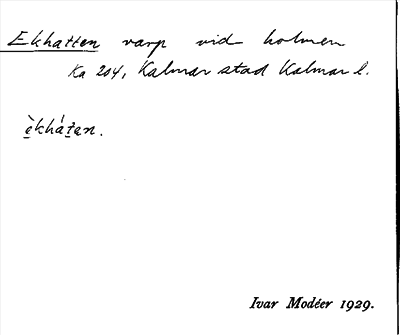 Ekhatten varp vid holmen
Ka 204, Kalmar stad Kalmar l.
èkhátan.
Ivar Modéer 1929.